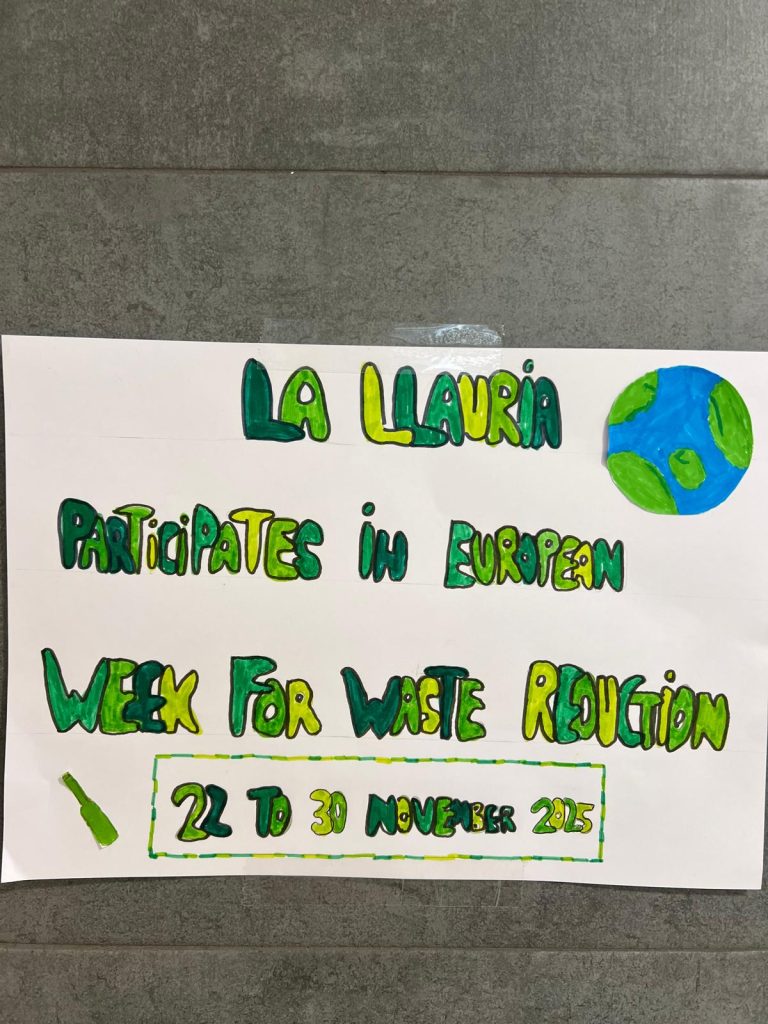 LA LLAURiA
PARTiCiPATES iN EUROPEAN
WEEK FOR WASTE REDUCTiON
22 TO 30 NOVEMBER 2025